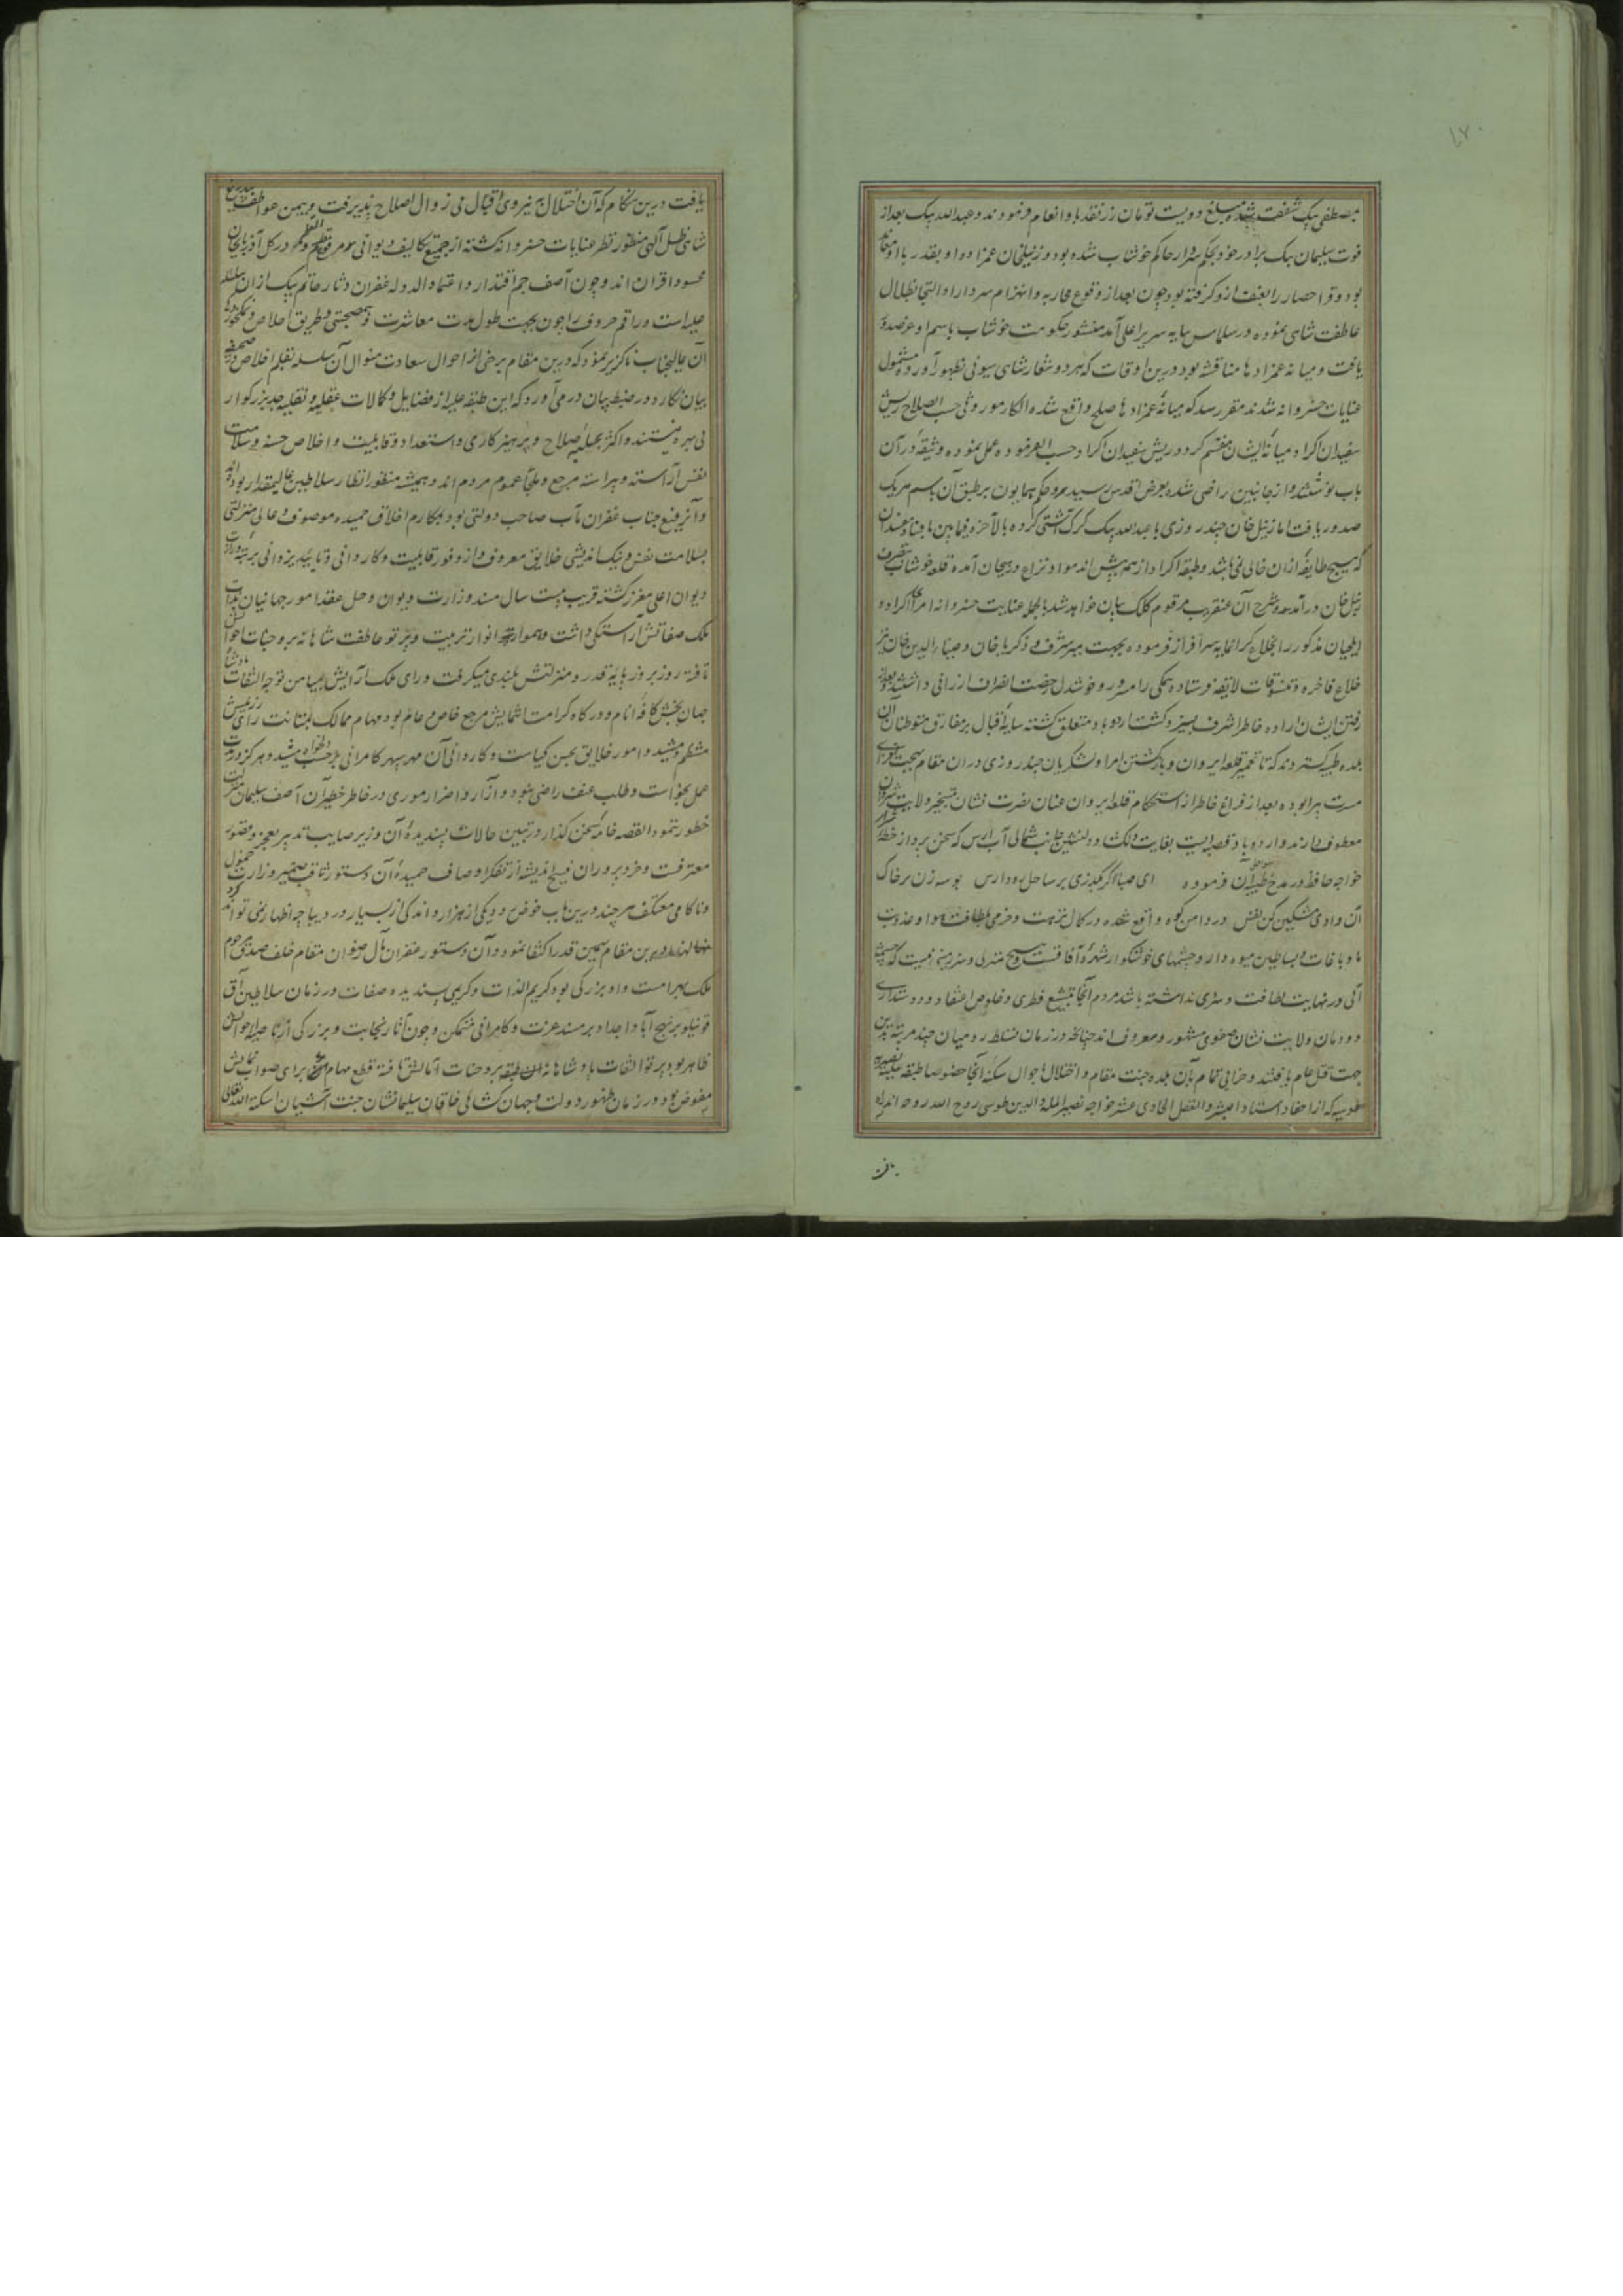 ۱۷۰
بمصطفی بیک شفقت شده مبلغ دویست تومان زر نقد بها و انعام فرمودند و عبدالله بیک بعد از
فوت سلیمان بیک برادر خود بحکم سردار حاکم خوشاب شده بود و زینل خان عمزاده او بقدر با او
بود و قراحصار را بعنف ازو گرفته بود چون بعد از وقوع محاربه و انهزام سردار او التجا بظلال
عاطفت شاهی نموده در سلماس بپایه سریر اعلی آمد منشور حکومت خوشاب باسم او عز صدور
یافت و میانه عمزادها مناقشه بود درین اوقات که هر دو شعار شاهی سیونی بظهور آورده مشمول
عنایات خسروانه شدند مقرر شد که میانه عمزادها صلح واقع شده الکا موروثی حسب الصلاح ریش
سفیدان اکراد میانه ایشان منقسم گردد ریش سفیدان اکراد حسب الفرموده عمل نموده وثیقه در آن
باب نوشتند و از جانبین راضی شده بعرض اقدس رسید و حکم همایون بر طبق آن باسم هریک
صدور یافت اما زینل خان چند روزی با عبدالله بیک گرک آشتی کرده بالاخره فیمابین
که هیچ طایفه ازان خالی نمی باشد و طبقه اکراد از همه بیش اند مواد نزاع در هیجان آمده قلعه خوشاب بتصرف
زینل خان درآمد و شرح آن عنقریب مرقوم کلک بیان خواهد شد بالجمله عنایت خسروانه امراء اکراد و
ایلچیان مذکور را بخلاع گرانمایه سرافراز فرموده بجهت میر شرف و ذکریا خان و ضیاء الدین خان نیز
خلاع فاخره و تنسوقات لایقه فرستاده همگی را مسرور و خوشدل رخصت انصراف ارزانی داشتند و بعد از
رفتن ایشان اراده خاطر اشرف بسیر و گشت اردوباد متعلق گشته سایه اقبال بر مفارق متوطنان آن
بلده طیبه گستردند که تا تعمیر قلعه ایروان و بازگشتن امرا و لشکریان چند روزی دران مقام بهجت افزای
مسرت پیرا بوده بعد از فراغ خاطر از استحکام قلعه ایروان عنان نصرت نشان بتسخیر ولایت شروان
معطوف دارند و اردوباد قصبه ایست بغایت دلگشا و دلنشین جانب شمالی آب ارس که سخن پرداز خطه
خواجه حافظ در مدح سواحل آن فرموده ای صبا گر بگذری بر ساحل رود ارس بوسه زن بر خاک
آن وادی مشکین کن نفس در دامن کوه واقع شده در کمال نزهت و خرمی بلطافت هوا و عذوبت
ما و باغات و بساطین میوه دار و چشمهای خوشگوار شهره آفاقست هیچ منزلی و سرزمینی نیست که چشمه
آبی در نهایت لطافت و سردی نداشته باشد مردم آنجا بتشیع فطری و خلوص اعتقاد و دوستداری
دودمان ولایت نشان صفوی مشهور و معروف اند چنانکه در زمان تسلط رومیان چند مرتبه بدین
جهت قتل عام یافتند و خرابی تمام بآن بلده جنت مقام و اختلال باحوال سکنه آنجا خصوصا طبقه علیه نصیریه
طوسیه که از احفاد استاد البشر و العقل الحادی عشر خواجه نصیر المله والدین طوسی روح الله روحه اند راه
یافت
یافت درین هنگام که آن اختلال به نیروی اقبال بی زوال اصلاح پذیرفت و بیمن عواطف بیدریغ
شاهی ظل آلهی منظور نظر عنایات خسروانه گشته از جمیع تکالیف دیوانی در کل آذربایجان
محسود اقران اند و چون آصف جم اقتدار و اعتماد الدوله غفران دثار حاتم بیک ازان سلسله
علیه است و راقم حروف را چون بجهت طول مدت معاشرت و هم صحبتی و طریق اخلاص
آن عالیجناب ناگزیر نمود که درین مقام برخی از احوال سعادت منوال آن سلسله بقلم اخلاص
بیان نگارد و در ضبط بیان درمی آورد که این طبقه علیه از فضایل و کمالات عقلیه و نقلیه جد بزرگوار
بی بهره نیستند و اکثر بحلیه صلاح و پرهیزکاری و استعداد و قابلیت و اخلاص حسنه و سلامت
نفس آراسته و پیراسته مرجع و ملجأ عموم مردم اند و همیشه منظور انظار سلاطین عالیمقدار بوده اند
و آنرفیع جناب غفران مآب صاحب دولتی بود بمکارم اخلاق حمیده موصوف و عالی منزلتی
بسلامت نفس و نیک اندیشی خلایق معروف از وفور قابلیت و کاردانی و تایید یزدانی برتبه وزارت
دیوان اعلی معزز گشته قریب بیست سال مسند وزارت دیوان و حل عقد امور جهانیان بذات
ملک صفاتش آراستگی داشت و همواره انوار تربیت و پرتو عاطفت شاهانه بر وجنات احوالش
تافته روز بروز پایه قدر و منزلتش بلندی میگرفت و رای ملک آرایش بمیامن توجه التفات پادشاه
جهان بخش کافه انام و درگاه کرامت انتمایش مرجع خاص و عام بود مهام ممالک بمتانت رای رزینش
منتظم میشد و امور خلایق بحسن کیاست و کاردانی آن مهر سپهر کامرانی بر حسب دلخواه میشد و هرگز در مدت
عمل بخواست و طلب عنف راضی نبود و آزار و اضرار موری در خاطر خطیر آن آصف سلیمان منزلت
خطور ننمود القصه خامه سخن گذار در تبیین حالات پسندیده آن وزیر صایب تدبیر بعجز و قصور
معترفست و خرد پروران فسیح اندیشه از تفکر اوصاف حمیده آن دستور ثاقب ضمیر و زاویه خمول
و ناکامی معتکف هرچند درین باب خوض رود یکی از هزار و اندکی از بسیار در دیباچه اظهار نمی تواند
لهذا درین مقام بهمین قدر اکتفا نمود و آن دستور غفران مآل رضوان مقام خلف صدق مرحوم
ملک بهرامست و او بزرگی بود کریم الذات و کریمی پسندیده صفات در زمان سلاطین آق
قوینلو بر نهج آبا و اجداد بر مسند عزت و کامرانی متمکن و چون آثار نجابت و بزرگی از ناصیه احوالش
ظاهر بود پرتو التفات پادشاهانه بر وجنات آمالش تافته قطع مهام برای صواب نمایش
مفوض بود و در زمان ظهور دولت و جهان گشائی خاقان سلیمان شان جنت آشیان اسکنه الله تعالی